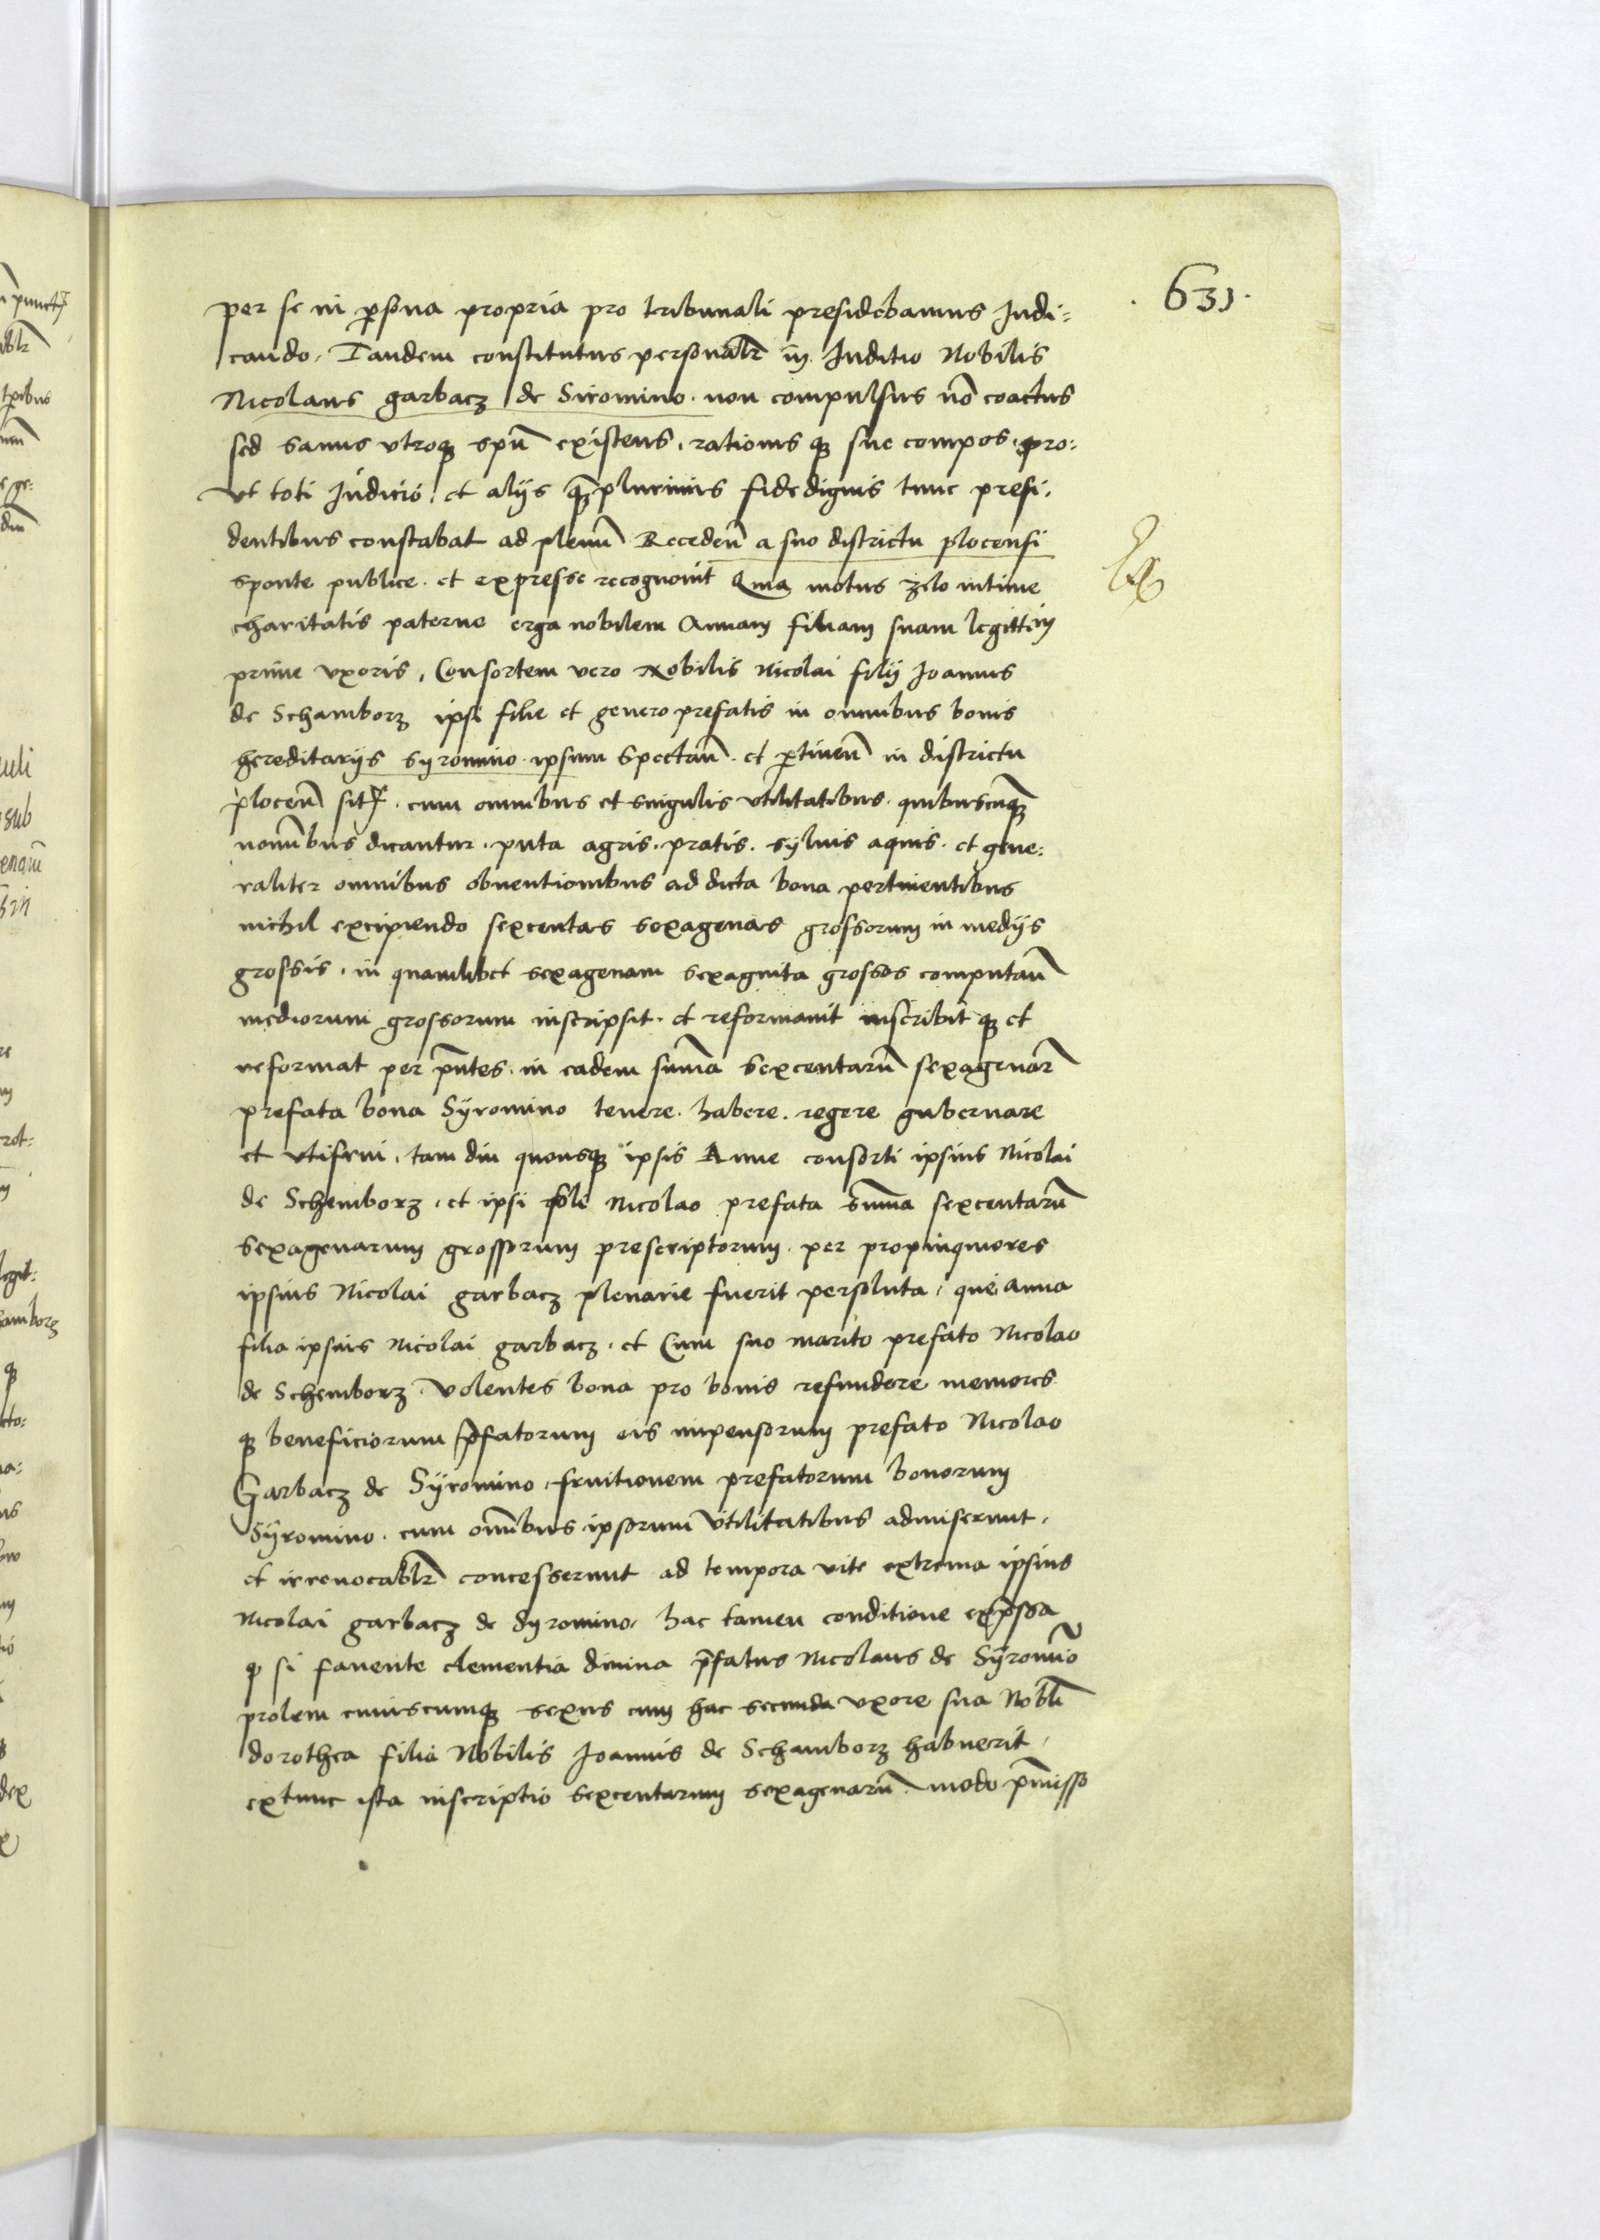 . 631 .
per se in psona propria pro tribunali presidebamus Judi⸗
cando. Tandem constitutus personalr in Juditio Nobilis
Nicolaus garbacz de Siromino. non compulsus nō coactus
sed sanus vtroq spū existens. rationis q sue compos. pro:
vt toti Judicio, et alijs q̄plurimis fidedignis tunc presi,
dentibus constabat ad plenū Recedeñ a suo districtu plocensi
sponte publice. et expresse recognouit Quia motus zelo intime
charitatis paterne erga nobilem Annam filiam suam legittim
prime vxoris, Consortem vero Nobilis Nicolai filij Joannis
de Schamborz ipsi filie et genero prefatis in omnibus bonis
hereditarijs syromino. ipsum spectañ. et ptineñ in districtu
ploceñ sit. cum omnibus et singulis vtilitatibus. quibuscunq
nomībus dicantur. puta agris. pratis. syluis aquis. et gene:
raliter omnibus obuentionibus ad dicta bona pertinentibus
nichil excipiendo sexcentas sexagenas grossorum in medijs
grossis. in quamlibet sexagenam sexaginta grossos computañ
mediorum grossorum inscripsit. et reformauit inscribit q et
reformat per pntes. in eadem suma sexcentarū sexagenar
prefata bona Syromino tenere. habere. regere gubernare
et vtifrui. tam diu quousq ipsis Anne consorti ipsius Nicolai
de Schemborz. et ipsi Nicolao prefata summa sexcentarū
sexagenarum grossorum prescriptorum. per propinquiores
ipsius Nicolai garbacz plenarie fuerit persoluta, que anna
filia ipsius Nicolai garbacz. et Cum suo marito prefato Nicolao
de Schemborz. volentes bona pro bonis refundere memores
q beneficiorum pfatorum eis impensorum prefato Nicolao
Garbacz de Syromino. fruitionem prefatorum bonorum
Syromino. cum omībus ipsorum vtilitatibus admiserunt.
et irreuocablr concesserunt ad tempora vite extrema ipsius
Nicolai garbacz de syromino. hac tamen conditione expssa
q si fauente clementia diuina pfatus Nicolaus de Syromīo
prolem cuiuscumq sexus cum hac secunda vxore sua Nobli
dorothea filia Nobilis Joannis de Schamborz habuerit,
extunc ista inscriptio sexcentarum sexagenarū. modo pmisso